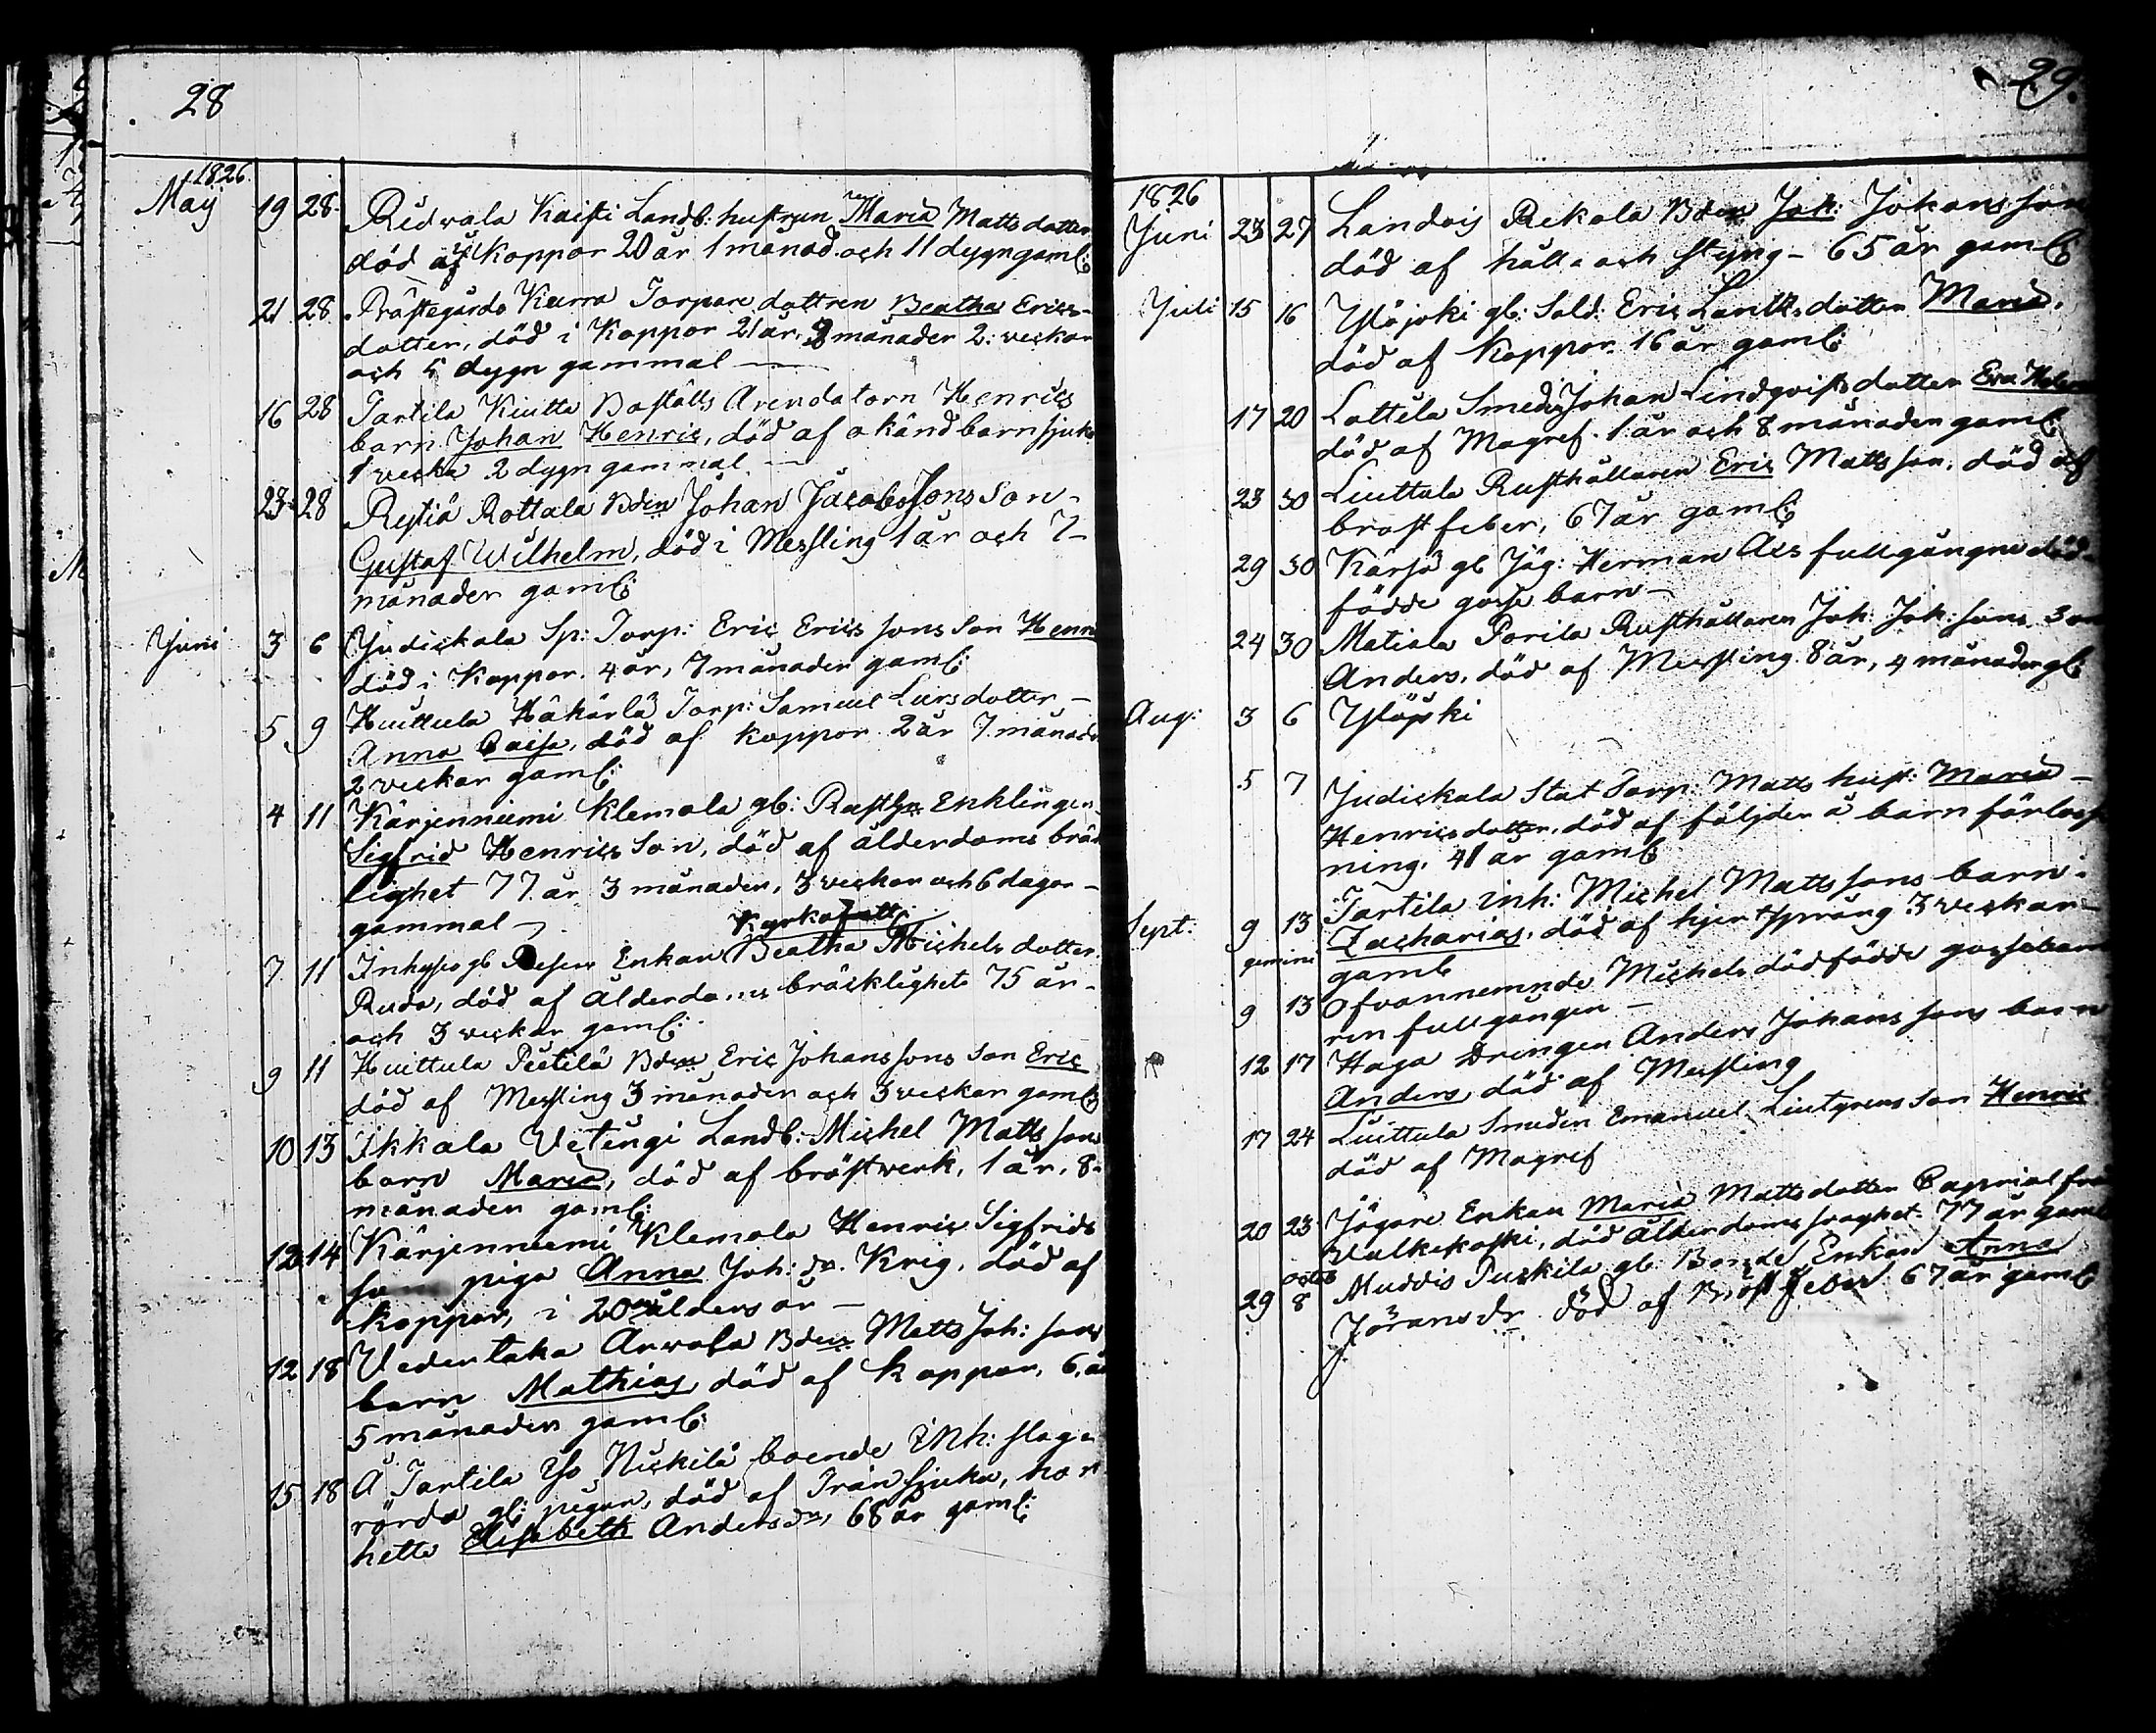 28
1826.
May 19 28. Ridvala Kaisti Landb: hustrun Maria Matts dotter
död i Koppor 20 år 1 månad och 11 dygn gaml:
21 28. Prästegårds Kurra Torpare dottren Beatha Erics-
dotter, död i Koppor 21 år, månader 2: veckor
och 5 dygn gammal —
16 28 Tartila Kiutta Boställs Arendatorn Henrics
barn Johan Henric, död af okänd barnsjuka
1 vecka 2 dygn gammal. —
23 28 Rytiä Rottala Bden Johan Jacobssons Son -
Gustaf Wilhelm, död i Messling 1 år och 7 -
månader gaml:
Juni 3 6 Judickala Sp: Torp: Eric Ericssons Son Henr
död i Koppor. 4 år, 7 månader gaml:
5 9 Huittula Häkärlä Torp: Samuel Lars dotter —
Anna Caisa, död af koppor 2 år 7 månader
2 veckor gaml:
4 11 Kärjenniemi Klemola gb: Rusth Enklingen
Sigfrid Henrics Son, död af ålderdoms bräck
lighet 77 år 3 månader, 3 veckor och 6 dagar -
gammal —
7 11 Inhyses gb Enkan Beatha Michels dotter
Ruda, död af Ålderdoms bräcklighet 75 år -
och 3 veckor gaml:
9 11 Huittula Pietilä Bden Eric Johanssons Son Eric
död af Messling 3 månader och 3 veckor gaml:
10 13 Ikkala Vetengi Landb: Michel Matts sons
barn Maria, död af bröstverk, 1 år, 8-
månader gaml:
12 14 Kärjenniemi Klemola Henric Sigfrids
piga Anna Joh: dr. Krig. död af
koppor, i 20 ålders år —
12 18 Vedentaka Arvola Bden Matts Joh: sons
barn Mathias, död af koppor, 6, år
5 månader gaml:
15 18 Å Tartila Yso Nickilä boende Inh: slag-
rörda gl: pigan, död af Trånsjuka, hon
hette Elisabeth Anders dr, 68 år gaml:
29.
1826
Juni 23 27 Landois Rekola Bden Joh: Johansson
död af håll och styng - 65 år gaml:
Juli 15 16 Ylöjoki gb: Sold: Eric dotter Maria,
död af Koppor 16 år gaml:
17 20 Lottila Smeden Johan Lindqvists dotter Eva Helena
död af Magref. 1 år och 8 månader gaml:
23 30 Liuttula Rusthållaren Eric Mattsson, död af
bröstfeber, 67 år gaml:
29 30 Kärjä gb Jäg: Herman Als fullgångne död-
födde gosse barn —
24 30 Matisla Porila Rusthållaren Joh: Joh: sons Son
Anders, död af Messling 8 år, 4 månader gl:
Aug: 3 6 Ylöjoki
5 7 Judickala Stat Torp: Matts hust: Maria —
Henricsdotter, död af följder å barn förloss
ning, 41 år gaml:
Sept: 9 13 Tartila inh: Michel Mattssons barn:
gemini Zacharias, död af hjertsprång 3 veckor —
gaml
9 13 Ofvannemnde Michels dödfödde gossebarn
fullgången —
12 17 Haga Drängen Anders Johanssons barn
Anders, död af Messling
17 24 Luittula Smeden Emanuel Lintgrens Son Henric
död af Magref
20 23 Jägare Enkan Maria Matts dotter från
Valkekoski, död Ålderdoms svaghet 77 år gaml
octob
29 8 Muddis Puskila gb: Bonde Enkan Anna
Jörans dr död af Bröst feber 67 år gaml